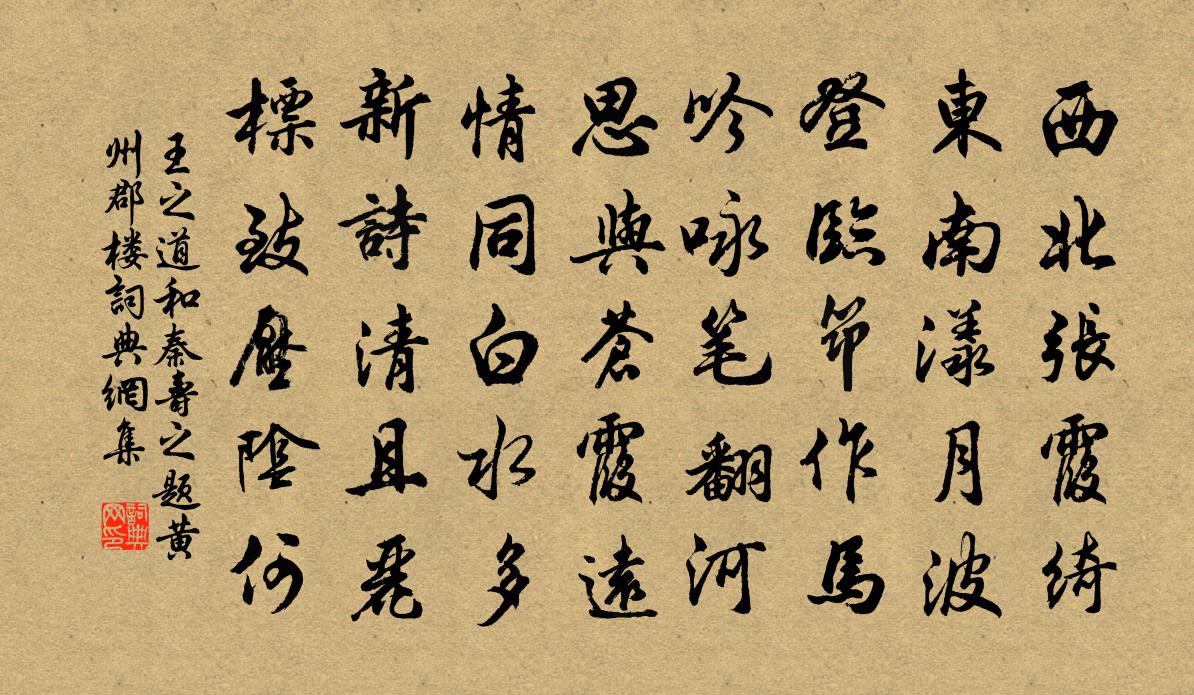 西北張霞綺
東南漾月波
登臨筇作馬
吟咏笔翻河
思與蒼霞遠
情同白水多
新詩清且麗
標致壓陰何
王之道和秦壽之题黄
州郡楼詞典網集
詞典网印